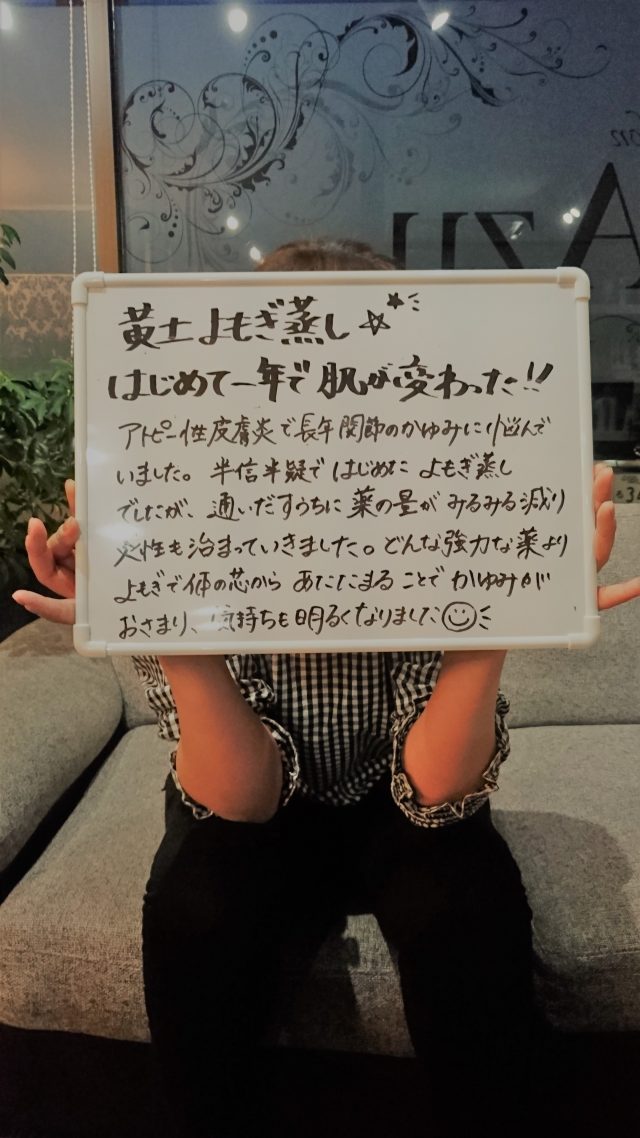 AZU
黄土よもぎ蒸し
はじめて一年で肌が変わった!!
アトピー性皮膚炎で長年関節のかゆみに悩んで
いました。半信半疑ではじめたよもぎ蒸し
でしたが、通いだすうちに薬の量がみるみる減り
炎性も治まっていきました。どんな強力な薬より
よもぎで体の芯からあたたまることでかゆみが
おさまり、気持ちも明るくなりました